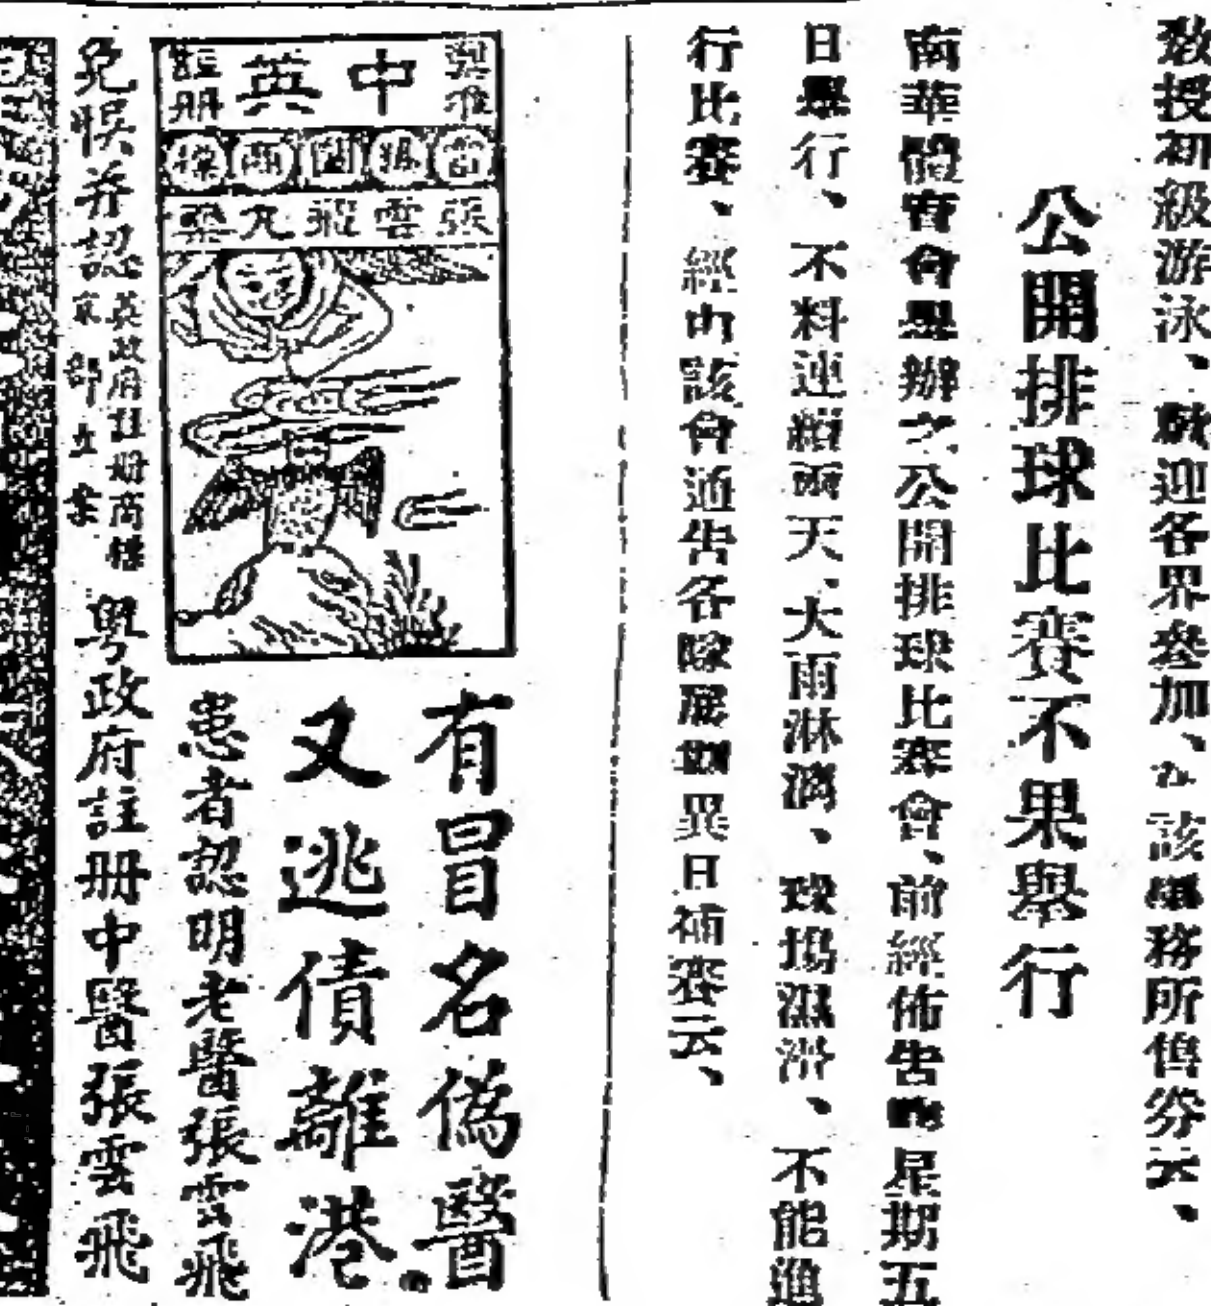 教授初級游泳、歡迎各界參加、在該學務所售券云、
公開排球比賽不果舉行
南華體育會舉辦之公開排球比賽會、前經佈告昨星期五
日舉行、不料連續雨天、大雨淋漓、致塲濕滑、不能進
行比賽、經由該會通告各隊展期異日補賽云、
奧雅
中英
註册
雷獅圖商標
張雲飛丸藥
有冒名偽醫
又逃債離港
患者認明老醫張雲飛
免悞并認
英政府註册商標
京部立案
粵政府註册中醫張雲飛